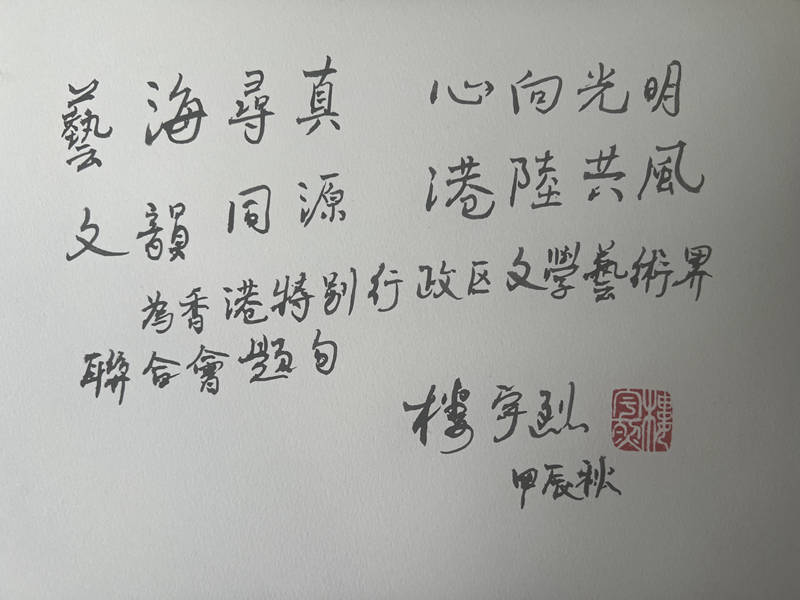 藝海尋真 心向光明
文韻同源 港陸共風
為香港特別行政区文學藝術界
聯合會題句
樓宇烈
樓宇烈
甲辰秋